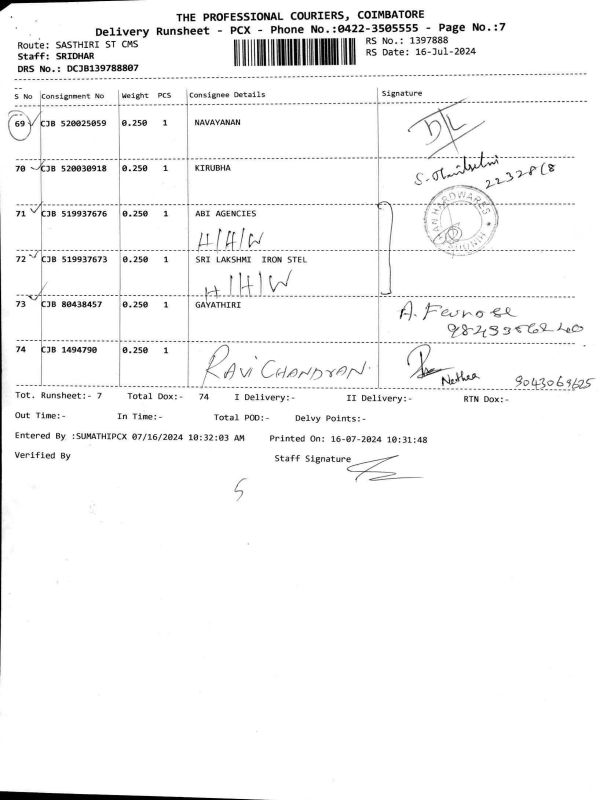 THE PROFESSIONAL COURIERS, COIMBATORE
Delivery Runsheet - PCX - Phone No.:0422-3505555 - Page No.:7
Route: SASTHIRI ST CMS RS No.: 1397888
Staff: SRIDHAR RS Date: 16-Jul-2024
DRS No.: DCJB139788807
S No Consignment No Weight PCS Consignee Details Signature
69 CJB 520025059 0.250 1 NAVAYANAN
D/L
70 CJB 520030918 0.250 1 KIRUBHA
22328(8
71 CJB 519937676 0.250 1 ABI AGENCIES
H/H/W
HARDWARES
72 CJB 519937673 0.250 1 SRI LAKSHMI IRON STEL
H/H/W
73 CJB 80438457 0.250 1 GAYATHIRI
A.
74 CJB 1494790 0.250 1
RAVI CHANDRAN.
Nethea 9043069625
Tot. Runsheet:- 7 Total Dox:- 74 I Delivery:- II Delivery:- RTN Dox:-
Out Time:- In Time:- Total POD:- Delvy Points:-
Entered By :SUMATHIPCX 07/16/2024 10:32:03 AM Printed On: 16-07-2024 10:31:48
Verified By Staff Signature
5